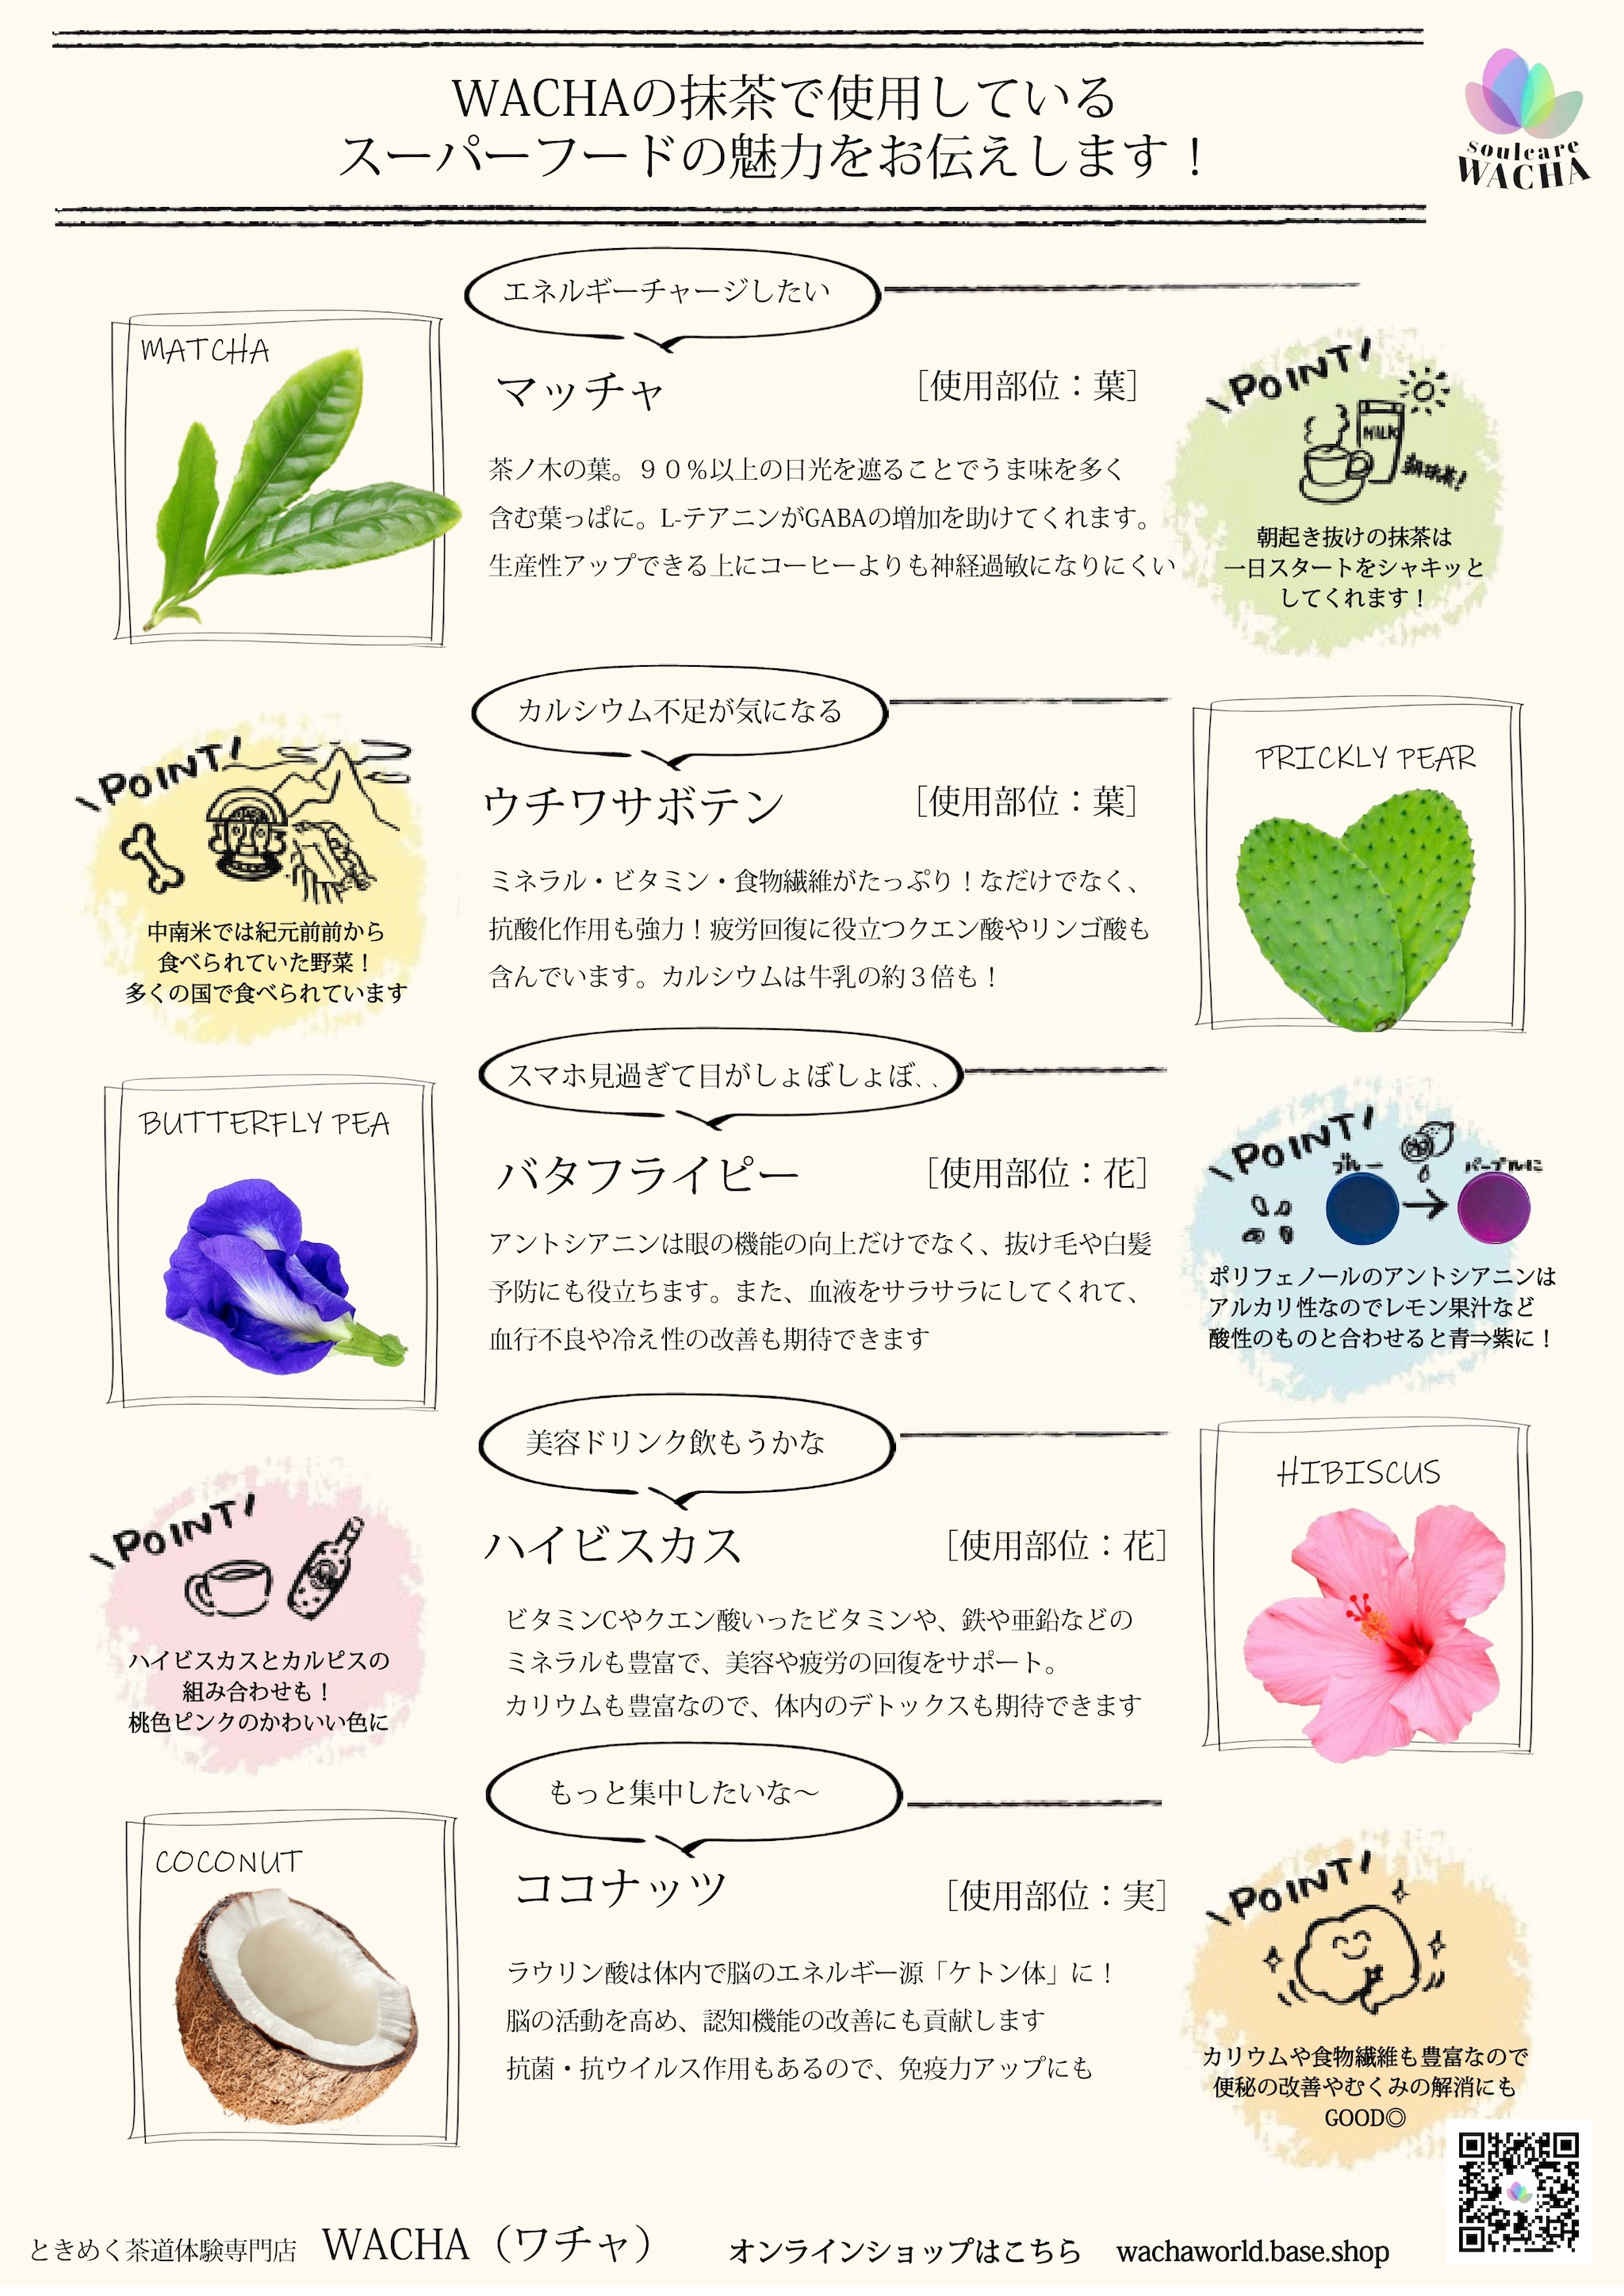 WACHAの抹茶で使用している
スーパーフードの魅力をお伝えします！
soulcare
WACHA
エネルギーチャージしたい
MATCHA
マッチャ
［使用部位：葉］
茶ノ木の葉。９０％以上の日光を遮ることでうま味を多く
含む葉っぱに。L-テアニンがGABAの増加を助けてくれます。
生産性アップできる上にコーヒーよりも神経過敏になりにくい
\POINT/
MILK
朝抹茶!
朝起き抜けの抹茶は
一日スタートをシャキッと
してくれます！
カルシウム不足が気になる
\POINT/
中南米では紀元前前から
食べられていた野菜！
多くの国で食べられています
ウチワサボテン
［使用部位：葉］
ミネラル・ビタミン・食物繊維がたっぷり！なだけでなく、
抗酸化作用も強力！疲労回復に役立つクエン酸やリンゴ酸も
含んでいます。カルシウムは牛乳の約３倍も！
PRICKLY PEAR
スマホ見過ぎて目がしょぼしょぼ、、
BUTTERFLY PEA
バタフライピー
［使用部位：花］
アントシアニンは眼の機能の向上だけでなく、抜け毛や白髪
予防にも役立ちます。また、血液をサラサラにしてくれて、
血行不良や冷え性の改善も期待できます
\POINT/
ブルー
パープルに
ポリフェノールのアントシアニンは
アルカリ性なのでレモン果汁など
酸性のものと合わせると青⇒紫に！
美容ドリンク飲もうかな
\POINT/
ハイビスカスとカルピスの
組み合わせも！
桃色ピンクのかわいい色に
ハイビスカス
［使用部位：花］
ビタミンCやクエン酸いったビタミンや、鉄や亜鉛などの
ミネラルも豊富で、美容や疲労の回復をサポート。
カリウムも豊富なので、体内のデトックスも期待できます
HIBISCUS
もっと集中したいな～
COCONUT
ココナッツ
［使用部位：実］
ラウリン酸は体内で脳のエネルギー源「ケトン体」に！
脳の活動を高め、認知機能の改善にも貢献します
抗菌・抗ウイルス作用もあるので、免疫力アップにも
\POINT/
カリウムや食物繊維も豊富なので
便秘の改善やむくみの解消にも
GOOD◎
ときめく茶道体験専門店 WACHA（ワチャ） オンラインショップはこちら wachaworld.base.shop